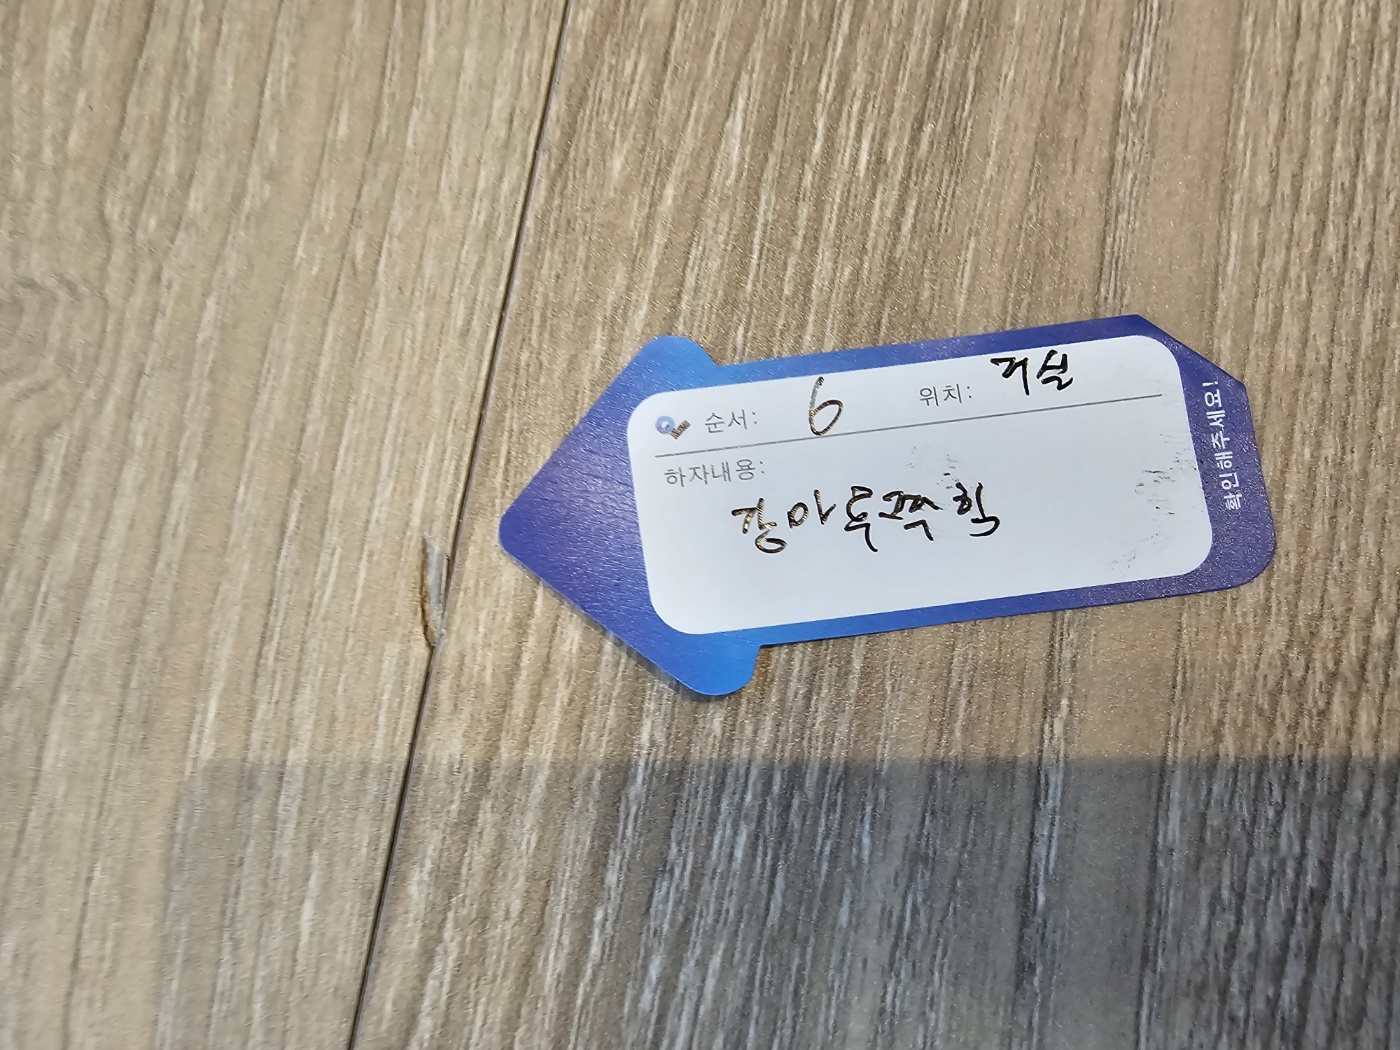 순서: 6 위치: 거실
하자내용:
강마루찍힘
확인해주세요!